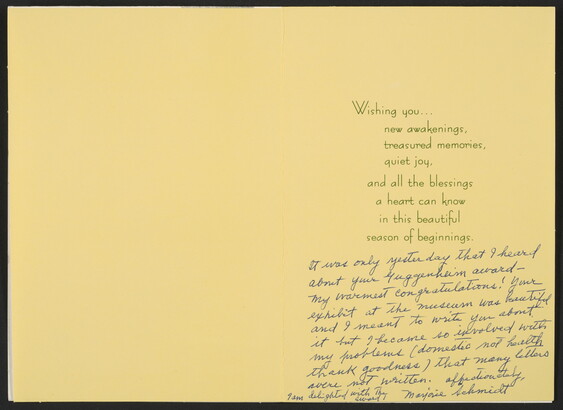 Wishing you...
new awakenings,
treasured memories,
quiet joy,
and all the blessings
a heart can know
in this beautiful
season of beginnings.
It was only yesterday that I heard
about your Guggenheim award—
My warmest congratulations! Your
exhibit at the museum was beautiful
and I meant to write you about
it but I became so involved with
my problems (domestic not health
thank goodness) that many letters
were not written. affectionately,
Marjorie Schmidt
I am delighted with the
award,